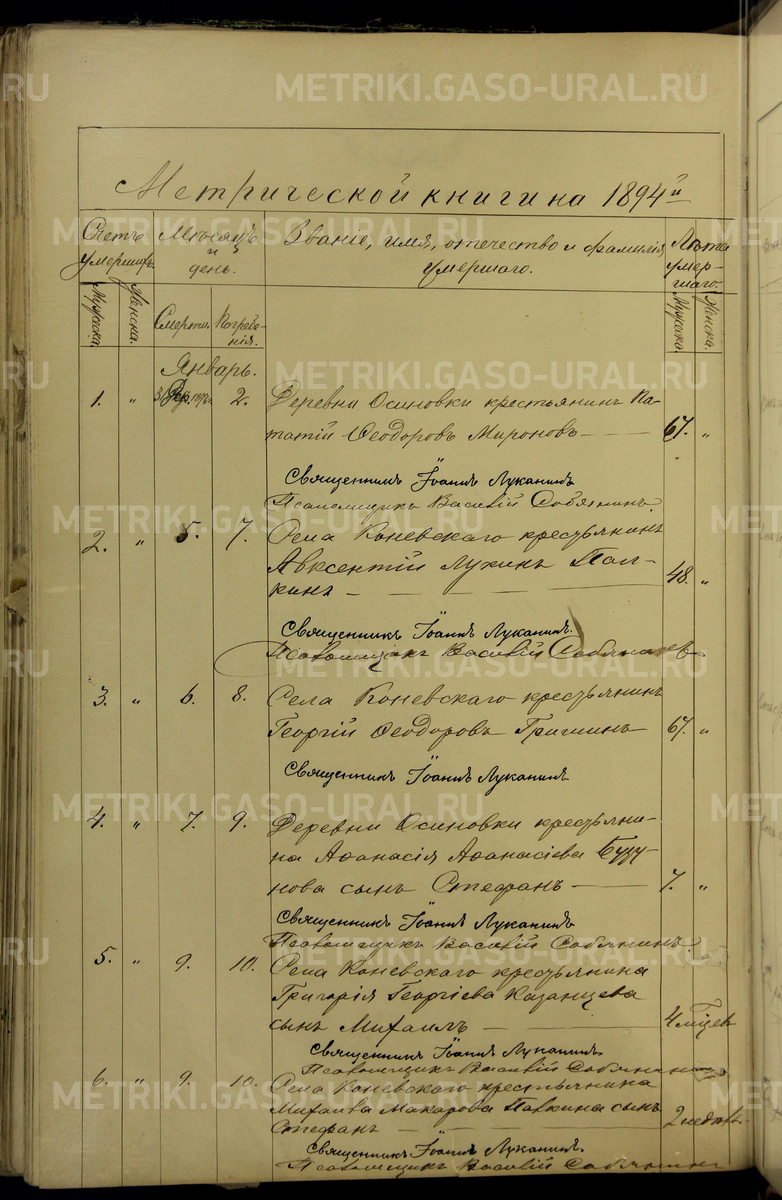 METRIKI.GASO-URAL.RU
Метрической книги на 1894й
Счетъ умершихъ. Мѣсяцъ и день. Званіе, имя, отечество и фамилія умершаго. Лѣта умершаго.
Мужска. Женска. Смерти. Погребенія. Мужска. Женска.
Январь.
1. " 31 Дек. 2. Деревни Осиновки крестьянинъ
Ѳеодоровъ Мироновъ — 67. "
Священникъ Іоаннъ Луканинъ
Псаломщикъ Василій Собянинъ.
2. " 5. 7. Села Коневскаго крестьянинъ
Авксентій Лукинъ Пал-
кинъ — 48. "
Священникъ Іоаннъ Луканинъ.
Псаломщикъ Василій Собянинъ
3. " 6. 8. Села Коневскаго крестьянинъ
Георгій Ѳеодоровъ Гришинъ 67. "
Священникъ Іоаннъ Луканинъ
4. " 7. 9. Деревни Осиновки крестьяни-
на Аѳанасія Аѳанасіева
нова сынъ Стефанъ — 7. "
Священникъ Іоаннъ Луканинъ
Псаломщикъ Василій Собянинъ.
5. " 9. 10. Села Коневскаго крестьянина
Григорія Георгіева Казанцева
сынъ Михаилъ — 4 мѣсец.
Священникъ Іоаннъ Луканинъ
Псаломщикъ Василій Собянинъ
6. " 9. 10. Села Коневскаго крестьянина
Михаила Макарова Палкина сынъ
Стефанъ — 2 недѣль.
Священникъ Іоаннъ Луканинъ.
Псаломщикъ Василій Собянинъ